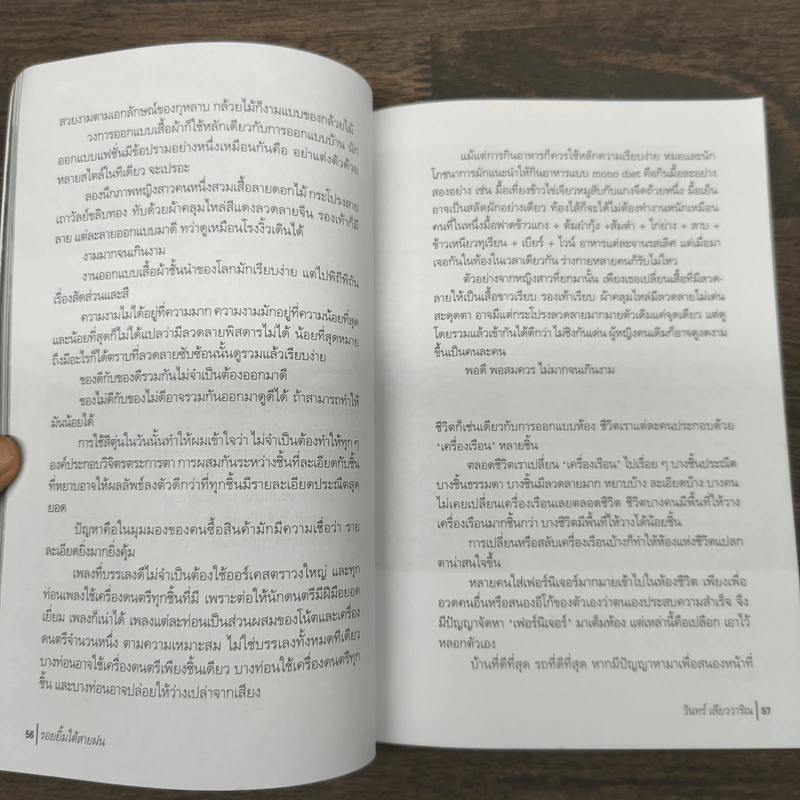 สวยงามตามเอกลักษณ์ของกุหลาบ กล้วยไม้ก็งามแบบของกล้วยไม้
วงการออกแบบเสื้อผ้าก็ใช้หลักเดียวกับการออกแบบบ้าน นัก
ออกแบบแฟชั่นมีข้อปรามอย่างหนึ่งเหมือนกันคือ อย่าแต่งตัวด้วย
หลายสไตล์ในทีเดียว จะเปรอะ
ลองนึกภาพหญิงสาวคนหนึ่งสวมเสื้อลายดอกไม้ กระโปรงลาย
เถาวัลย์ขลิบทอง ทับด้วยผ้าคลุมไหล่สีแดงลวดลายจีน รองเท้าก็มี
ลาย แต่ละลายออกแบบมาดี ทว่าดูเหมือนโรงงิ้วเดินได้
งามมากจนเกินงาม
งานออกแบบเสื้อผ้าชั้นนำของโลกมักเรียบง่าย แต่ไปพิถีพิถัน
เรื่องสัดส่วนและสี
ความงามไม่ได้อยู่ที่ความมาก ความงามมักอยู่ที่ความน้อยที่สุด
และน้อยที่สุดก็ไม่ได้แปลว่ามีลวดลายพิสดารไม่ได้ น้อยที่สุดหมาย
ถึงมีอะไรก็ได้ตราบที่ลวดลายซับซ้อนนั้นดูรวมแล้วเรียบง่าย
ของดีกับของดีรวมกันไม่จำเป็นต้องออกมาดี
ของไม่ดีกับของไม่ดีอาจรวมกันออกมาดูดีได้ ถ้าสามารถทำให้
มันน้อยได้
การใช้สีตุ่นในวันนั้นทำให้ผมเข้าใจว่า ไม่จำเป็นต้องทำให้ทุก ๆ
องค์ประกอบวิจิตรตระการตา การผสมกันระหว่างชิ้นที่ละเอียดกับชิ้น
ที่หยาบอาจให้ผลลัพธ์ลงตัวดีกว่าที่ทุกชิ้นมีรายละเอียดประณีตสุด
ยอด
ปัญหาคือในมุมมองของคนซื้อสินค้ามักมีความเชื่อว่า ราย
ละเอียดยิ่งมากยิ่งคุ้ม
เพลงที่บรรเลงดีไม่จำเป็นต้องใช้ออร์เคสตราวงใหญ่ และทุก
ท่อนเพลงใช้เครื่องดนตรีทุกชิ้นที่มี เพราะต่อให้นักดนตรีมีฝีมือยอด
เยี่ยม เพลงก็เน่าได้ เพลงแต่ละท่อนเป็นส่วนผสมของโน้ตและเครื่อง
ดนตรีจำนวนหนึ่ง ตามความเหมาะสม ไม่ใช่บรรเลงทั้งหมดทีเดียว
บางท่อนอาจใช้เครื่องดนตรีเพียงชิ้นเดียว บางท่อนใช้เครื่องดนตรีทุก
ชิ้น และบางท่อนอาจปล่อยให้ว่างเปล่าจากเสียง
56 รอยยิ้มใต้สายฝน
แม้แต่การกินอาหารก็ควรใช้หลักความเรียบง่าย หมอและนัก
โภชนาการมักแนะนำให้กินอาหารแบบ mono diet คือกินมื้อละอย่าง
สองอย่าง เช่น มื้อเที่ยงข้าวไข่เจียวหมูสับกับแกงจืดถ้วยหนึ่ง มื้อเย็น
อาจเป็นสลัดผักอย่างเดียว ท้องไส้ก็จะได้ไม่ต้องทำงานหนักเหมือน
คนที่ในหนึ่งมื้อฟาดข้าวแกง + ต้มยำกุ้ง +ส้มตำ + ไก่ย่าง + ลาบ +
ข้าวเหนียวทุเรียน + เบียร์ + ไวน์ อาหารแต่ละจานรสเลิศ แต่เมื่อมา
เจอกันในท้องในเวลาเดียวกัน ร่างกายหลายคนก็รับไม่ไหว
ตัวอย่างจากหญิงสาวที่ยกมานั้น เพียงเธอเปลี่ยนเสื้อที่มีลวด-
ลายให้เป็นเสื้อขาวเรียบ รองเท้าเรียบ ผ้าคลุมไหล่มีลวดลายไม่เด่น
สะดุดตา อาจมีแต่กระโปรงลวดลายมากมายตัวเดิมแค่จุดเดียว แต่ดู
โดยรวมแล้วเข้ากันได้ดีกว่า ไม่ชิงกันเด่น ผู้หญิงคนเดิมก็อาจดูงดงาม
ขึ้นเป็นคนละคน
พอดี พอสมควร ไม่มากจนเกินงาม
ชีวิตก็เช่นเดียวกับการออกแบบห้อง ชีวิตเราแต่ละคนประกอบด้วย
‘เครื่องเรือน’ หลายชิ้น
ตลอดชีวิตเราเปลี่ยน ‘เครื่องเรือน’ ไปเรื่อย ๆ บางชิ้นประณีต
บางชิ้นธรรมดา บางชิ้นมีลวดลายมาก หยาบบ้าง ละเอียดบ้าง บางคน
ไม่เคยเปลี่ยนเครื่องเรือนเลยตลอดชีวิต ชีวิตบางคนมีพื้นที่ให้วาง
เครื่องเรือนมากชิ้นกว่า บางชีวิตมีพื้นที่ให้วางได้น้อยชิ้น
การเปลี่ยนหรือสลับเครื่องเรือนบ้างก็ทำให้ห้องแห่งชีวิตแปลก
ตาน่าสนใจขึ้น
หลายคนใส่เฟอร์นิเจอร์มากมายเข้าไปในห้องชีวิต เพียงเพื่อ
อวดคนอื่นหรือสนองอีโก้ของตัวเองว่าตนเองประสบความสำเร็จ จึง
มีปัญญาจัดหา ‘เฟอร์นิเจอร์’ มาเต็มห้อง แต่เหล่านี้คือเปลือก เอาไว้
หลอกตัวเอง
บ้านที่ดีที่สุด รถที่ดีที่สุด หากมีปัญญาหามาเพื่อสนองหน้าที่
วินทร์ เลียววาริณ 57